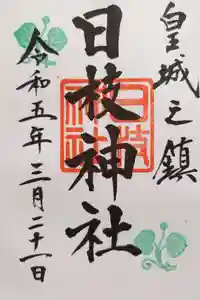 皇城之鎮
日枝神社
令和五年三月二十一日
日枝神社